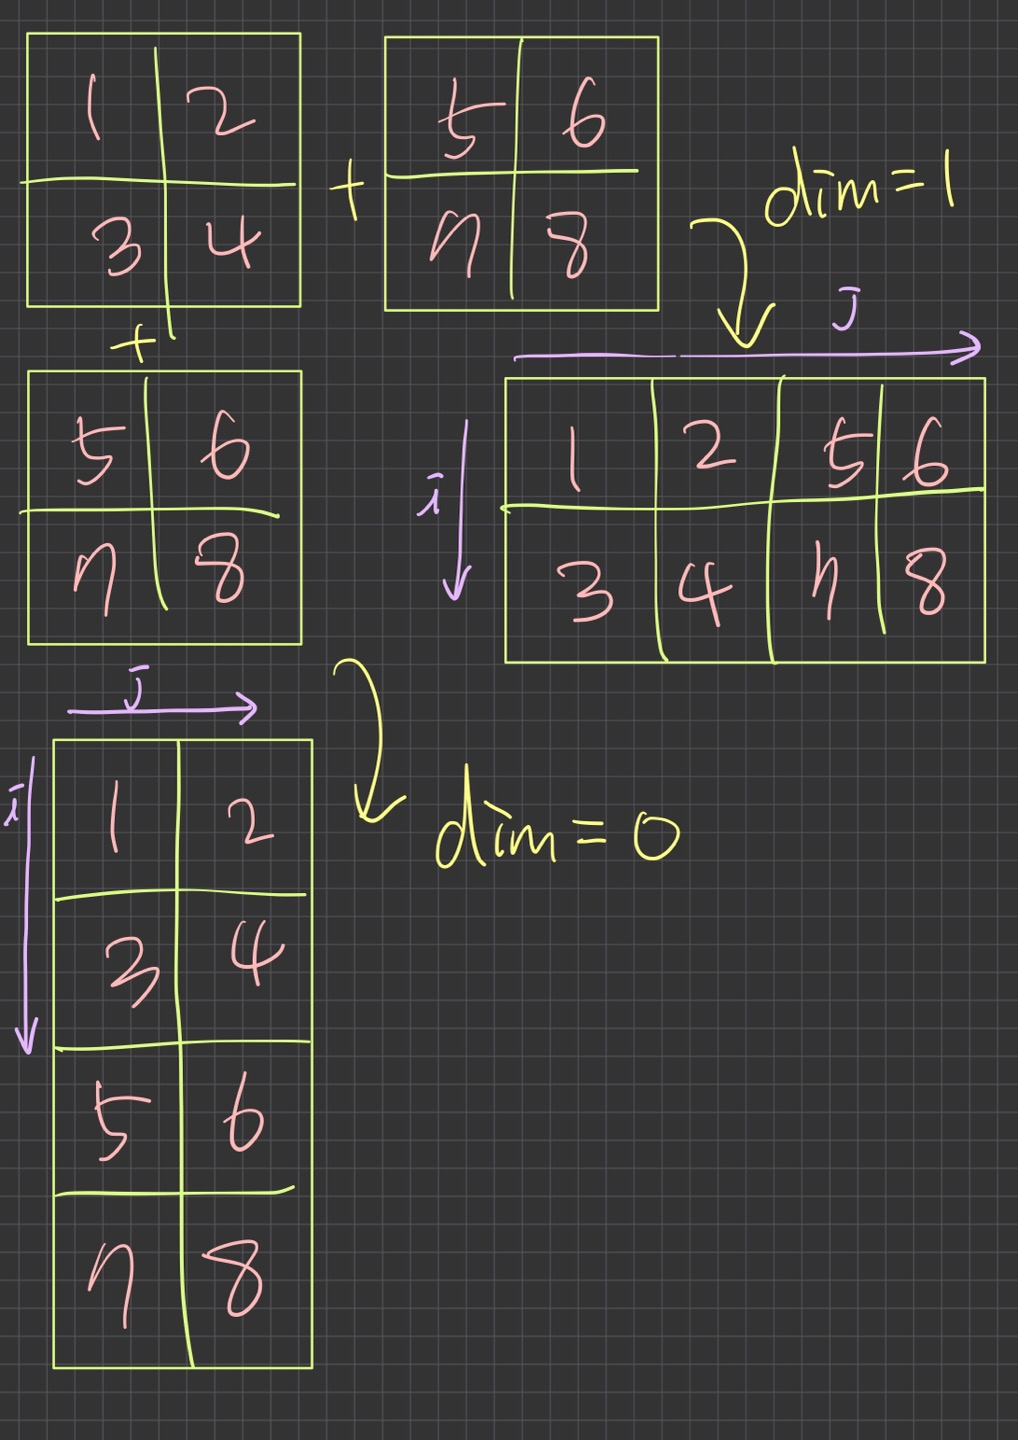 1 2
3 4
+
5 6
7 8
dim=1
+
5 6
7 8
J
i
1 2 5 6
3 4 7 8
J
i
1 2
3 4
5 6
7 8
dim=0